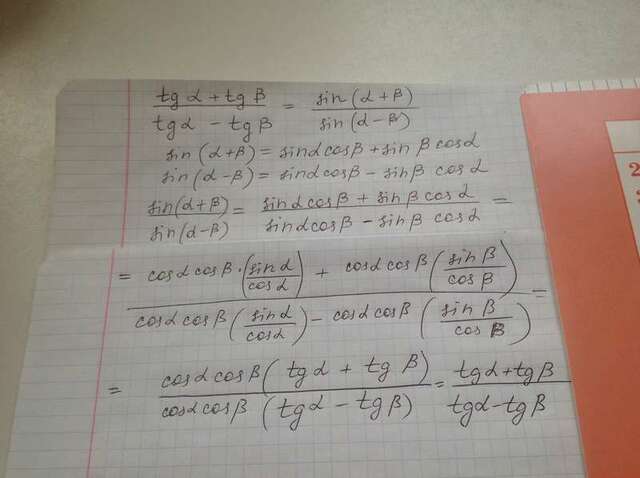 (tg α + tg β)/(tg α − tg β) = sin(α+β)/sin(α−β)
sin(α+β) = sinα cosβ + sinβ cosα
sin(α−β) = sinα cosβ − sinβ cosα
sin(α+β)/sin(α−β) = (sinα cosβ + sinβ cosα)/(sinα cosβ − sinβ cosα) =
= (cosα cosβ · (sinα/cosα) + cosα cosβ (sinβ/cosβ))/(cosα cosβ (sinα/cosα) − cosα cosβ (sinβ/cosβ)) =
= (cosα cosβ (tgα + tgβ))/(cosα cosβ (tgα − tgβ)) = (tgα + tgβ)/(tgα − tgβ)
2